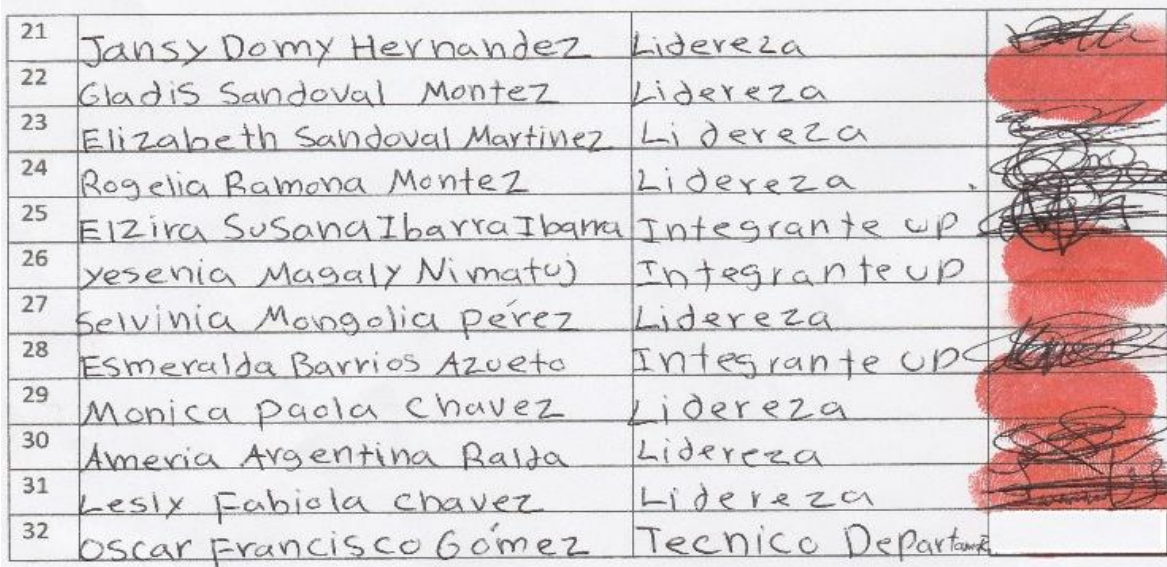 21 Jansy Domy Hernandez Lidereza
22 Gladis Sandoval Montez Lidereza
23 Elizabeth Sandoval Martinez Lidereza
24 Rogelia Ramona Montez Lidereza
25 Elzira Susana Ibarra Ibarra Integrante up
26 yesenia Magaly Nimatuj Integrante up
27 Selvinia Mongolia pérez Lidereza
28 Esmeralda Barrios Azueto Integrante UP
29 Monica paola chavez Lidereza
30 Ameria Argentina Ralda Lidereza
31 Lesly Fabiola chavez Lidereza
32 Oscar Francisco Gómez Tecnico